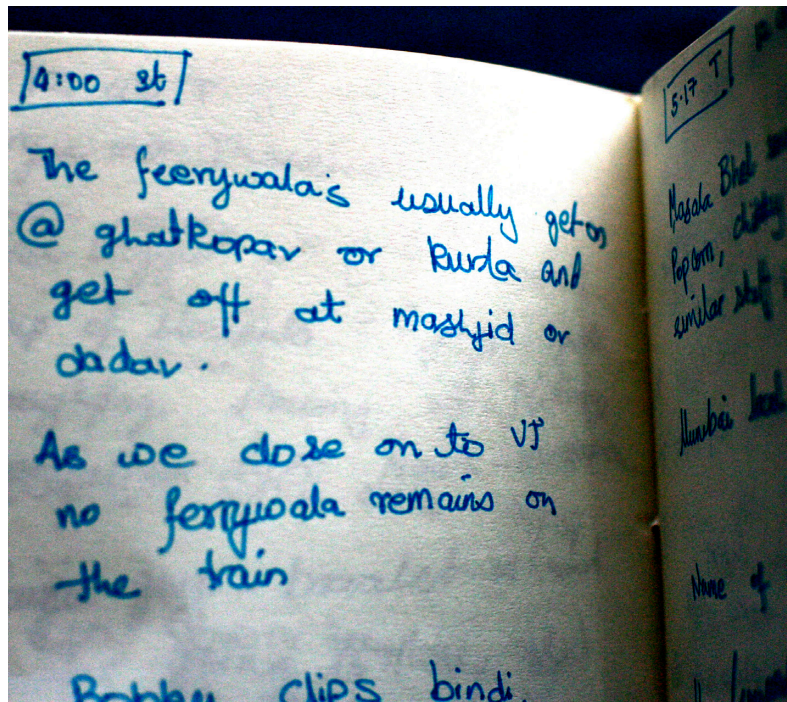 4:00 st
The feerywala's usually get on
@ ghatkopar or kurla and
get off at mashjid or
dadar.
As we close on to VT
no ferrywala remains on
the train
Bobby clips bindi.
5.17 T
Masala Bhel
Popcorn,
similar stuff
Mumbai local
Name of